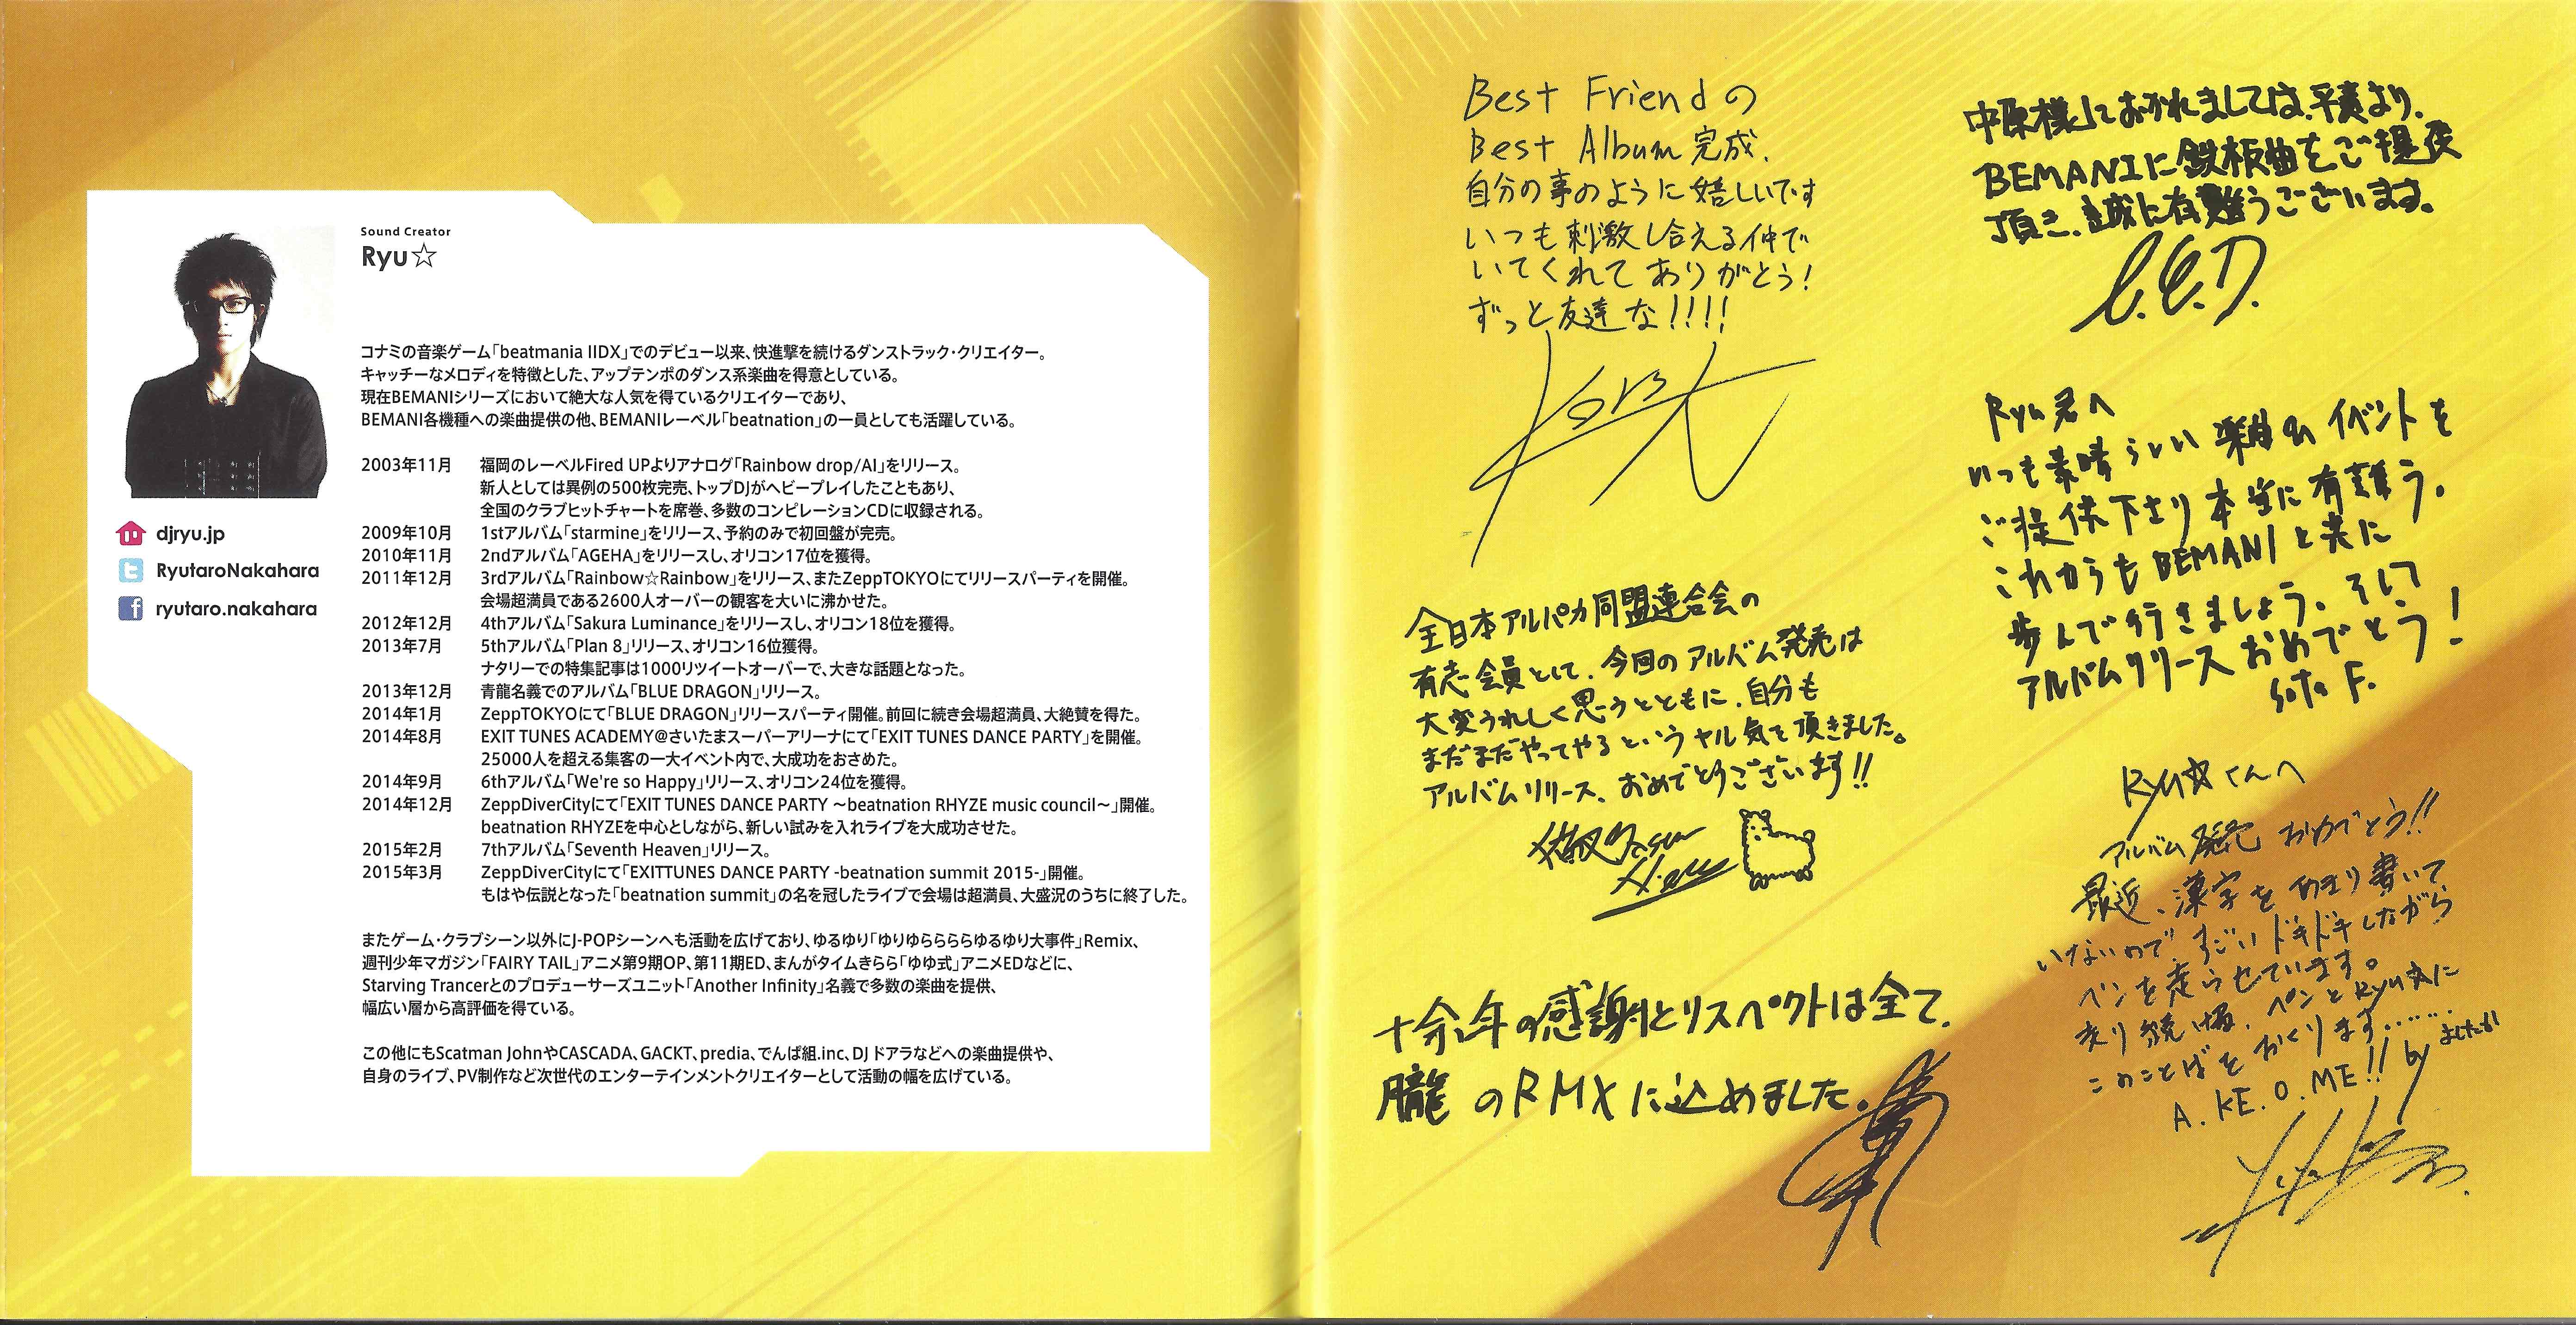 Sound Creator
Ryu☆
djryu.jp
RyutaroNakahara
ryutaro.nakahara
コナミの音楽ゲーム「beatmania IIDX」でのデビュー以来、快進撃を続けるダンストラック・クリエイター。
キャッチーなメロディを特徴とした、アップテンポのダンス系楽曲を得意としている。
現在BEMANIシリーズにおいて絶大な人気を得ているクリエイターであり、
BEMANI各機種への楽曲提供の他、BEMANIレーベル「beatnation」の一員としても活躍している。
2003年11月 福岡のレーベルFired UPよりアナログ「Rainbow drop/AI」をリリース。
新人としては異例の500枚完売、トップDJがヘビープレイしたこともあり、
全国のクラブヒットチャートを席巻、多数のコンピレーションCDに収録される。
2009年10月 1stアルバム「starmine」をリリース、予約のみで初回盤が完売。
2010年11月 2ndアルバム「AGEHA」をリリースし、オリコン17位を獲得。
2011年12月 3rdアルバム「Rainbow☆Rainbow」をリリース、またZeppTOKYOにてリリースパーティを開催。
会場超満員である2600人オーバーの観客を大いに沸かせた。
2012年12月 4thアルバム「Sakura Luminance」をリリースし、オリコン18位を獲得。
2013年7月 5thアルバム「Plan 8」リリース、オリコン16位獲得。
ナタリーでの特集記事は1000リツイートオーバーで、大きな話題となった。
2013年12月 青龍名義でのアルバム「BLUE DRAGON」リリース。
2014年1月 ZeppTOKYOにて「BLUE DRAGON」リリースパーティ開催。前回に続き会場超満員、大絶賛を得た。
2014年8月 EXIT TUNES ACADEMY@さいたまスーパーアリーナにて「EXIT TUNES DANCE PARTY」を開催。
25000人を超える集客の一大イベント内で、大成功をおさめた。
2014年9月 6thアルバム「We're so Happy」リリース、オリコン24位を獲得。
2014年12月 ZeppDiverCityにて「EXIT TUNES DANCE PARTY ～beatnation RHYZE music council～」開催。
beatnation RHYZEを中心としながら、新しい試みを入れライブを大成功させた。
2015年2月 7thアルバム「Seventh Heaven」リリース。
2015年3月 ZeppDiverCityにて「EXITTUNES DANCE PARTY -beatnation summit 2015-」開催。
もはや伝説となった「beatnation summit」の名を冠したライブで会場は超満員、大盛況のうちに終了した。
またゲーム・クラブシーン以外にJ-POPシーンへも活動を広げており、ゆるゆり「ゆりゆららららゆるゆり大事件」Remix、
週刊少年マガジン「FAIRY TAIL」アニメ第9期OP、第11期ED、まんがタイムきらら「ゆゆ式」アニメEDなどに、
Starving Trancerとのプロデューサーズユニット「Another Infinity」名義で多数の楽曲を提供、
幅広い層から高評価を得ている。
この他にもScatman JohnやCASCADA、GACKT、predia、でんぱ組.inc、DJ ドアラなどへの楽曲提供や、
自身のライブ、PV制作など次世代のエンターテインメントクリエイターとして活動の幅を広げている。
Best Friendの
Best Album 完成、
自分の事のように嬉しいです
いつも刺激し合える仲で
いてくれてありがとう!
ずっと友達な!!!!
全日本アルパカ同盟連合会の
有志会員として、今回のアルバム発売は
大変うれしく思うとともに、自分も
まだまだやってやるというヤル気を頂きました。
アルバムリリース、おめでとうございます!!
十余年の感謝とリスペクトは全て、
朧のRMXに込めました。
中原様におかれましては、平素より、
BEMANIに鉄板曲をご提供
頂き、誠に有難うございます。
Ryu君へ
いつも素晴らしい楽曲や イベントを
ご提供下さり本当に有難う。
これからもBEMANIと共に
歩んで行きましょう。そして
アルバムリリースおめでとう!
Sota F.
Ryu☆くんへ
アルバム発売おめでとう!!
最近、漢字をあまり書いて
いないので、すごいドキドキしながら
ペンを走らせています。
走り続け、ペンとRyu☆に
このことばをおくります……
A.KE.O.ME!! by